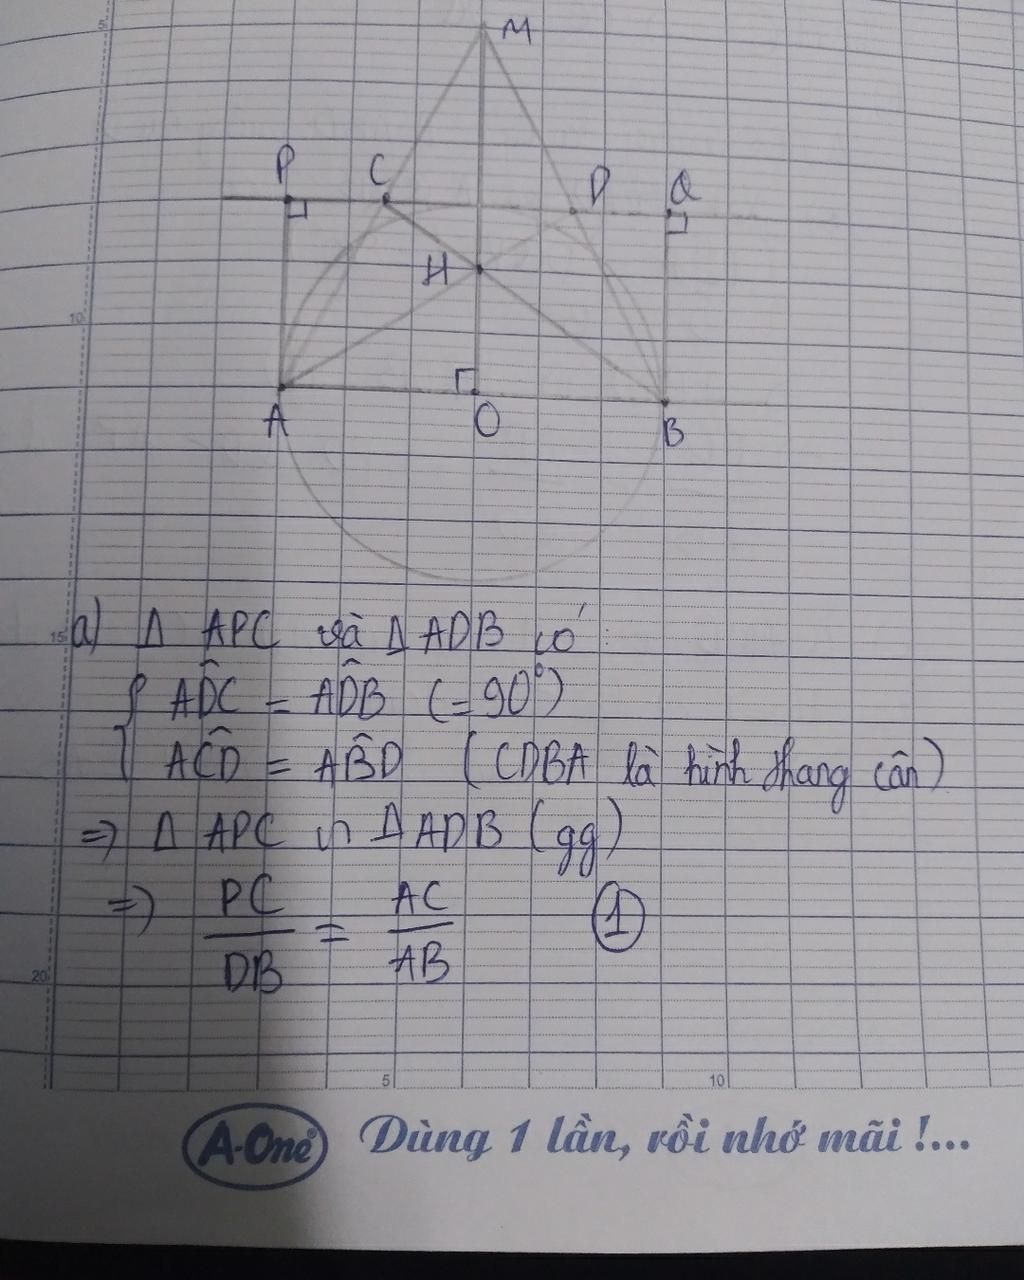 5
M
P C D Q
H
10
A O B
15 a) Δ APC và Δ ADB có:
{ AD̂C = AD̂B (= 90°)
AĈD = AB̂D (CDBA là hình thang cân)
=> Δ APC ∽ Δ ADB (gg)
=> PC/DB = AC/AB ①
20
5 10
A-One® Dùng 1 lần, rồi nhớ mãi !...